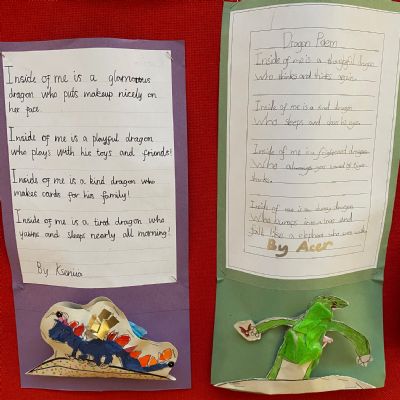 Inside of me is a glamorous
dragon who puts makeup nicely on
her face.
Inside of me is a playful dragon
who plays with his toys and friends!
Inside of me is a kind dragon who
makes cards for his family!
Inside of me is a tired dragon who
yawns and sleeps nearly all morning!
By Kseniia
Dragon Poem
Inside of me is a playful dragon
who thinks and thinks again.
Inside of me is a kind dragon
who sleeps and
Inside of me is frightened dragon
Who always
Inside of me is a dragon
Who jumps and
a elephant who
By Acer